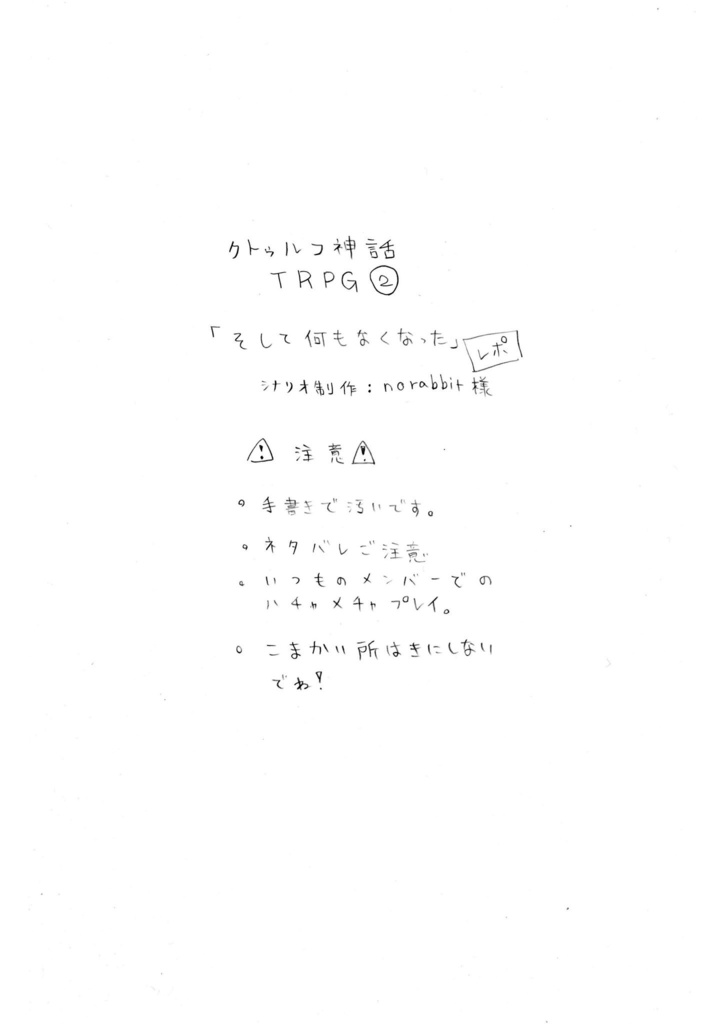 クトゥルフ神話
TRPG②
「そして何もなくなった」レポ
シナリオ制作：norabbit様
⚠注意⚠
・手書きで汚いです。
・ネタバレご注意
・いつものメンバーでの
ハチャメチャプレイ。
・こまかい所はきにしない
でね!